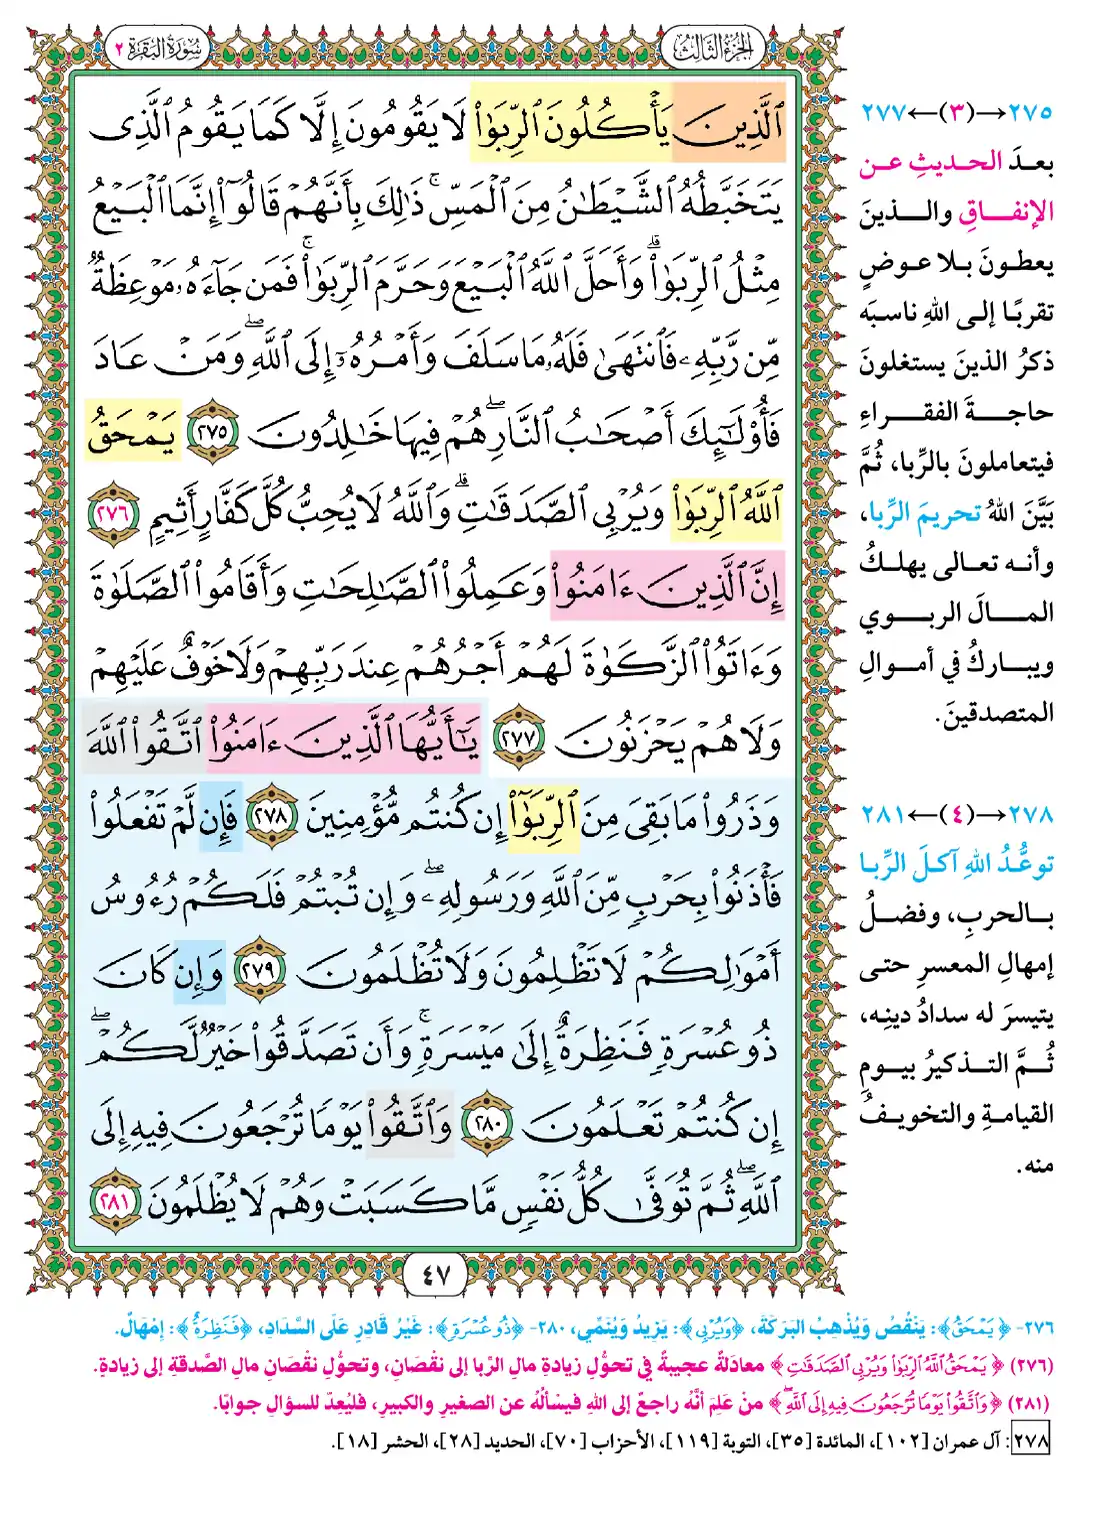 الجزء الثالث
سورة البقرة ٢
ٱلَّذِينَ يَأۡكُلُونَ ٱلرِّبَوٰاْ لَا يَقُومُونَ إِلَّا كَمَا يَقُومُ ٱلَّذِي
يَتَخَبَّطُهُ ٱلشَّيۡطَٰنُ مِنَ ٱلۡمَسِّۚ ذَٰلِكَ بِأَنَّهُمۡ قَالُوٓاْ إِنَّمَا ٱلۡبَيۡعُ
مِثۡلُ ٱلرِّبَوٰاْۗ وَأَحَلَّ ٱللَّهُ ٱلۡبَيۡعَ وَحَرَّمَ ٱلرِّبَوٰاْۚ فَمَن جَآءَهُۥ مَوۡعِظَةٞ
مِّن رَّبِّهِۦ فَٱنتَهَىٰ فَلَهُۥ مَا سَلَفَ وَأَمۡرُهُۥٓ إِلَى ٱللَّهِۖ وَمَنۡ عَادَ
فَأُوْلَٰٓئِكَ أَصۡحَٰبُ ٱلنَّارِۖ هُمۡ فِيهَا خَٰلِدُونَ ٢٧٥ يَمۡحَقُ
ٱللَّهُ ٱلرِّبَوٰاْ وَيُرۡبِي ٱلصَّدَقَٰتِۗ وَٱللَّهُ لَا يُحِبُّ كُلَّ كَفَّارٍ أَثِيمٍ ٢٧٦
إِنَّ ٱلَّذِينَ ءَامَنُواْ وَعَمِلُواْ ٱلصَّٰلِحَٰتِ وَأَقَامُواْ ٱلصَّلَوٰةَ
وَءَاتَوُاْ ٱلزَّكَوٰةَ لَهُمۡ أَجۡرُهُمۡ عِندَ رَبِّهِمۡ وَلَا خَوۡفٌ عَلَيۡهِمۡ
وَلَا هُمۡ يَحۡزَنُونَ ٢٧٧ يَٰٓأَيُّهَا ٱلَّذِينَ ءَامَنُواْ ٱتَّقُواْ ٱللَّهَ
وَذَرُواْ مَا بَقِيَ مِنَ ٱلرِّبَوٰٓاْ إِن كُنتُم مُّؤۡمِنِينَ ٢٧٨ فَإِن لَّمۡ تَفۡعَلُواْ
فَأۡذَنُواْ بِحَرۡبٖ مِّنَ ٱللَّهِ وَرَسُولِهِۦۖ وَإِن تُبۡتُمۡ فَلَكُمۡ رُءُوسُ
أَمۡوَٰلِكُمۡ لَا تَظۡلِمُونَ وَلَا تُظۡلَمُونَ ٢٧٩ وَإِن كَانَ
ذُو عُسۡرَةٖ فَنَظِرَةٌ إِلَىٰ مَيۡسَرَةٖۚ وَأَن تَصَدَّقُواْ خَيۡرٞ لَّكُمۡۖ
إِن كُنتُمۡ تَعۡلَمُونَ ٢٨٠ وَٱتَّقُواْ يَوۡمٗا تُرۡجَعُونَ فِيهِ إِلَى
ٱللَّهِۖ ثُمَّ تُوَفَّىٰ كُلُّ نَفۡسٖ مَّا كَسَبَتۡ وَهُمۡ لَا يُظۡلَمُونَ ٢٨١
٤٧
٢٧٥→(٣)←٢٧٧
بعدَ الحديثِ عن
الإنفاقِ والذينَ
يعطونَ بلا عوضٍ
تقربًا إلى اللهِ ناسبَه
ذكرُ الذينَ يستغلونَ
حاجةَ الفقراءِ
فيتعاملونَ بالرِّبا، ثُمَّ
بَيَّنَ اللهُ تحريمَ الرِّبا،
وأنه تعالى يهلكُ
المالَ الربوي
ويباركُ في أموالِ
المتصدقينَ.
٢٧٨→(٤)←٢٨١
توعُّدُ اللهِ آكلَ الرِّبا
بالحربِ، وفضلُ
إمهالِ المعسرِ حتى
يتيسرَ له سدادُ دينِه،
ثُمَّ التذكيرُ بيومِ
القيامةِ والتخويفُ
منه.
٢٧٦- ﴿يَمْحَقُ﴾: يَنْقُصُ وَيُذْهِبُ البَرَكَةَ، ﴿وَيُرْبِي﴾: يَزِيدُ وَيُنَمِّي، ٢٨٠- ﴿ذُو عُسْرَةٍ﴾: غَيْرُ قَادِرٍ عَلَى السَّدَادِ، ﴿فَنَظِرَةٌ﴾: إِمْهَالٌ.
(٢٧٦) ﴿يَمْحَقُ اللَّهُ الرِّبَوٰاْ وَيُرْبِي الصَّدَقَٰتِ﴾ معادَلةٌ عجيبةٌ في تحوُّلِ زيادةِ مالِ الرِّبا إلى نقْصَانٍ، وتحوُّلِ نقْصَانِ مالِ الصَّدقةِ إلى زيادةٍ.
(٢٨١) ﴿وَاتَّقُواْ يَوْمًا تُرْجَعُونَ فِيهِ إِلَى اللَّهِۖ﴾ منْ عَلِمَ أنَّهُ راجعٌ إلى اللهِ فيسْألُهُ عن الصغيرِ والكبيرِ، فليُعِدَّ للسؤالِ جوابًا.
٢٧٨: آل عمران [١٠٢]، المائدة [٣٥]، التوبة [١١٩]، الأحزاب [٧٠]، الحديد [٢٨]، الحشر [١٨].